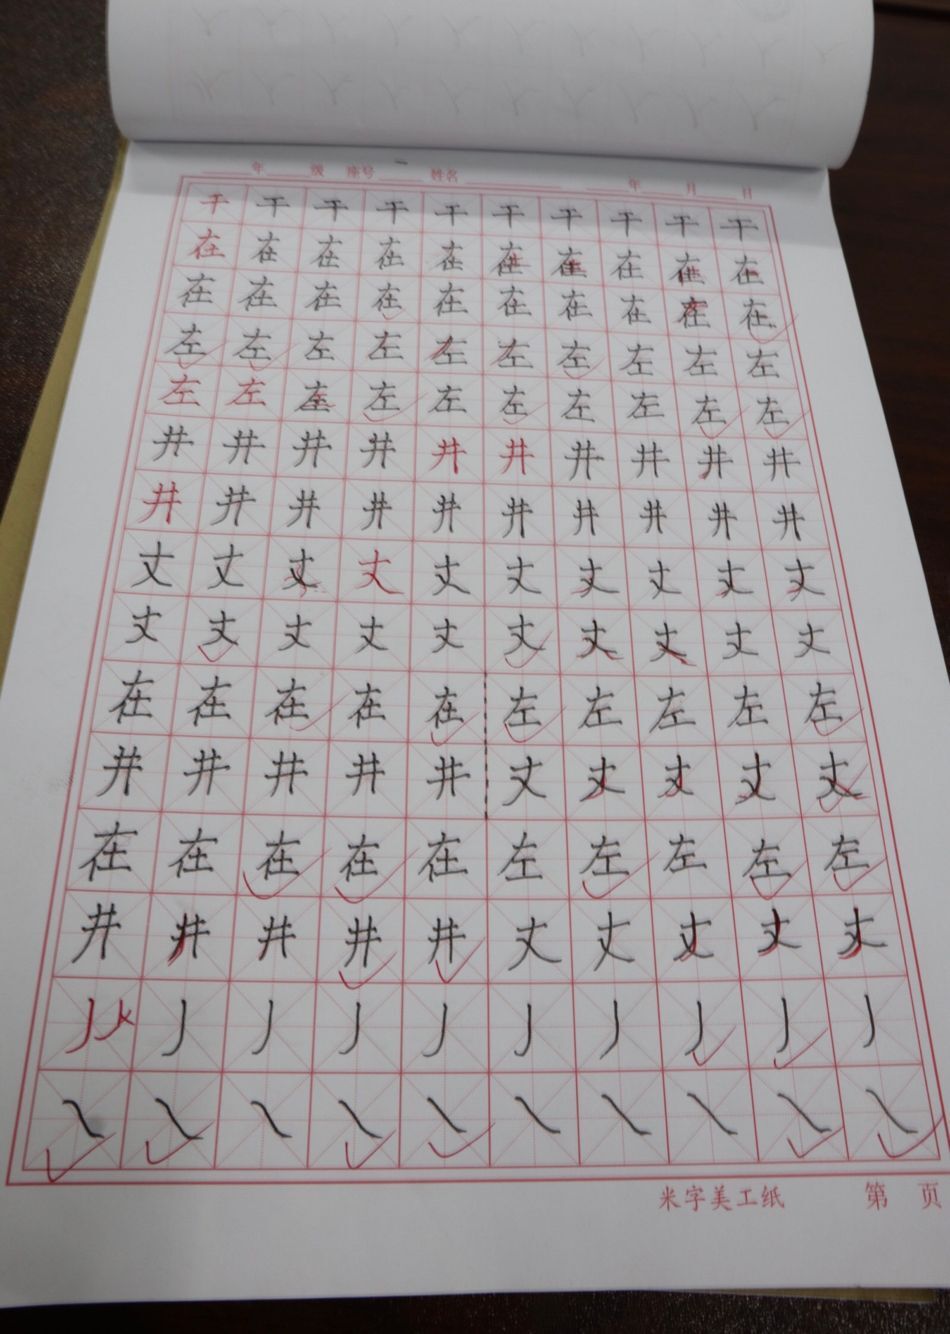 年 级 座号 姓名 年 月 日
干 干 干 干 干 干 干 干 干 干
在 在 在 在 在 在 在 在 在 在
在 在 在 在 在 在 在 在 在 在
左 左 左 左 左 左 左 左 左 左
左 左 左 左 左 左 左 左 左 左
井 井 井 井 井 井 井 井 井 井
井 井 井 井 井 井 井 井 井 井
丈 丈 丈 丈 丈 丈 丈 丈 丈 丈
丈 丈 丈 丈 丈 丈 丈 丈 丈 丈
在 在 在 在 在 左 左 左 左 左
井 井 井 井 井 丈 丈 丈 丈 丈
在 在 在 在 在 左 左 左 左 左
井 井 井 井 井 丈 丈 丈 丈 丈
丿 丿 丿 丿 丿 丿 丿 丿 丿 丿
㇏ ㇏ ㇏ ㇏ ㇏ ㇏ ㇏ ㇏ ㇏ ㇏
米字美工纸 第 页